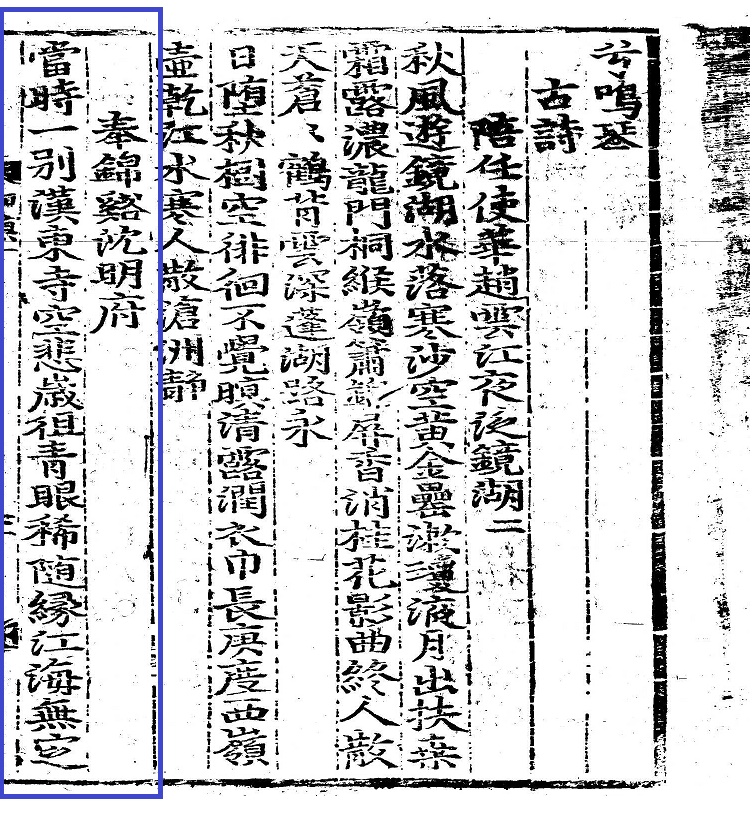 兮鳴琴
古詩
陪任使華趙雲江夜泛鏡湖二
秋風遊鏡湖水落寒沙空黃金罍潋瓊液月出扶桑
霜露濃龍門桐緱嶺簫錦屏香消桂花影曲終人散
天蒼〻鶴背雲深蓬湖路永
日墮秋樹空徘徊不覺暝清露潤衣巾長庚度西嶺
壺乾江水寒人散滄洲靜
奉錦谿沈明府
當時一別漢東寺空悲歲徂青眼稀随緣江海無定